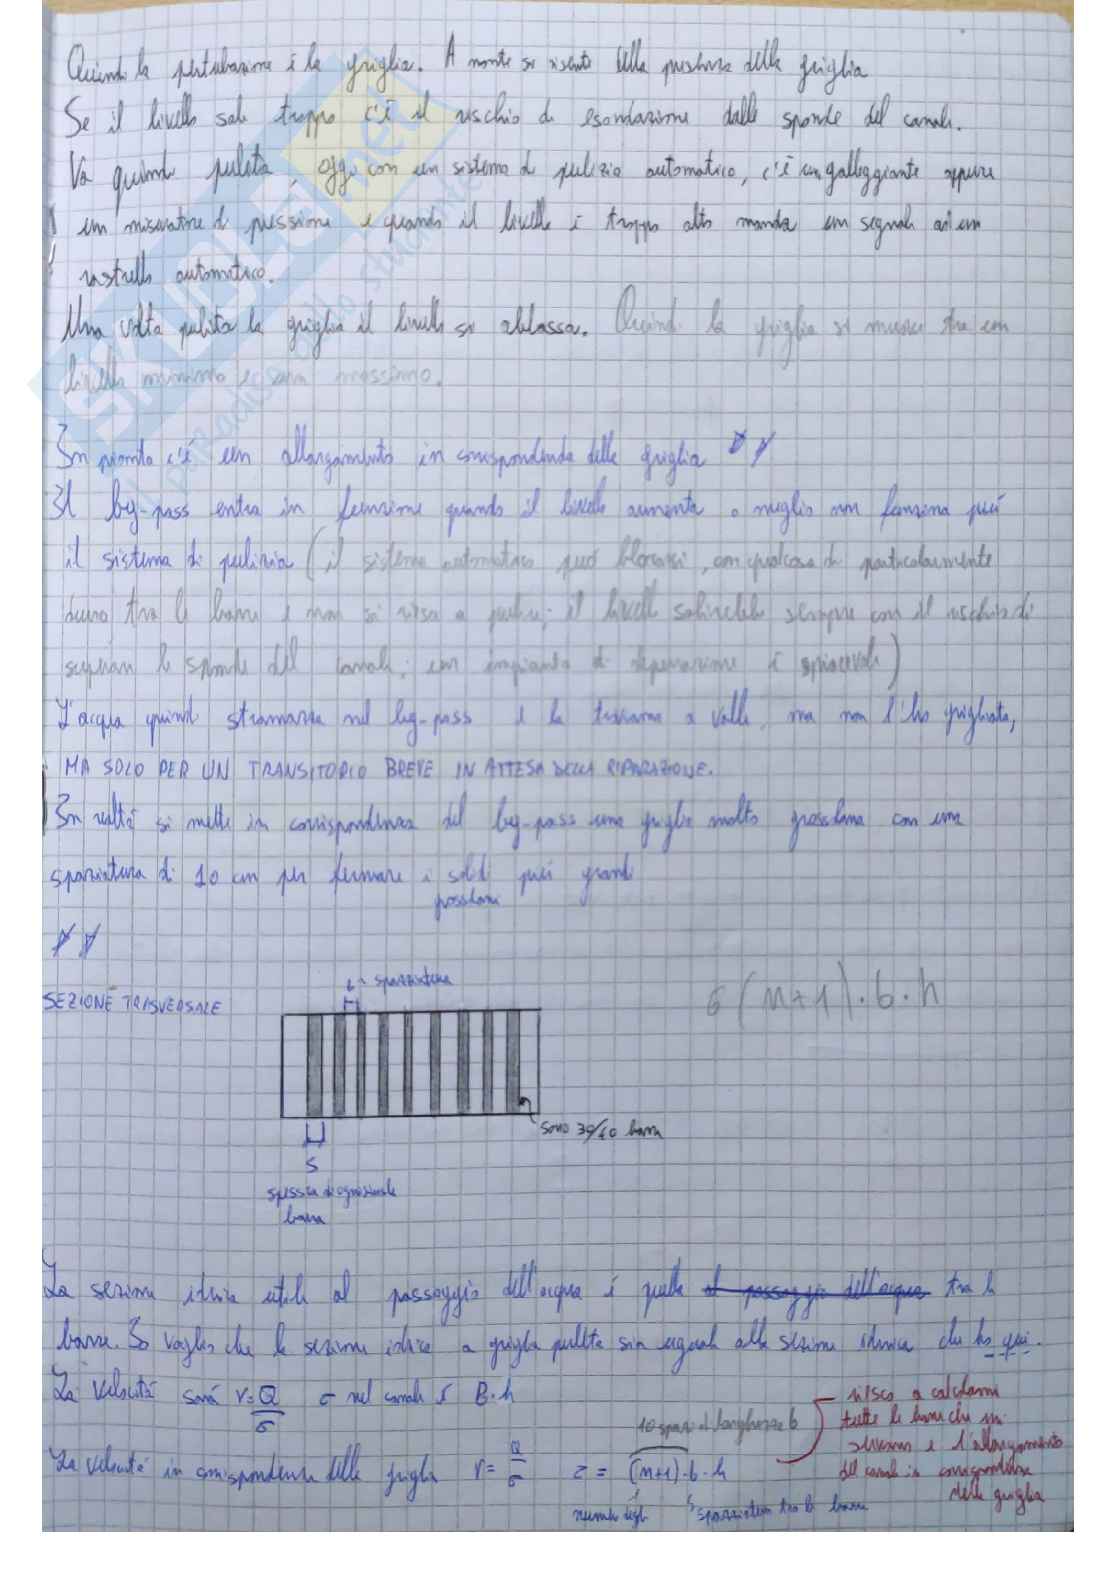 Quindi la perturbazione è la griglia. A monte si risente della presenza della griglia
Se il livello sale troppo c'è il rischio di esondazione dalle sponde del canale.
Va quindi pulita, oggi con un sistema di pulizia automatico, c'è un galleggiante oppure
un misuratore di pressione e quando il livello è troppo alto manda un segnale ad un
rastrello automatico.
Una volta pulita la griglia il livello si abbassa. Quindi la griglia si muove tra un
livello minimo e uno massimo.
In pianta c'è un allargamento in corrispondenza della griglia
Il by-pass entra in funzione quando il livello aumenta o meglio non funziona più
il sistema di pulizia (il sistema automatico può bloccarsi, con qualcosa di particolarmente
duro tra le barre e non si riesce a pulire; il livello salirebbe sempre con il rischio di
superare le sponde del canale; un impianto di depurazione è spiacevole)
L'acqua quindi stramazza nel by-pass e la troviamo a valle, ma non l'ho grigliata,
MA SOLO PER UN TRANSITORIO BREVE IN ATTESA DELLA RIPARAZIONE.
In realtà si mette in corrispondenza del by-pass una griglia molto grossolana con una
spaziatura di 10 cm per fermare i solidi più grandi
grossolani
SEZIONE TRASVERSALE
b = spaziatura
σ (n+1)·b·h
sono 39/40 barre
s
spessore di ogni singola
barra
La sezione idrica utile al passaggio dell'acqua è quella al passaggio dell'acqua tra le
barre. Io voglio che la sezione idrica a griglia pulita sia uguale alla sezione idrica che ho qui.
La velocità sarà v = Q/σ σ nel canale è B·h
riesco a calcolarmi
tutte le barre che mi
servono e l'allargamento
del canale in corrispondenza
della griglia
10 spazi di larghezza b
La velocità in corrispondenza della griglia v = Q/σ σ = (n+1)·b·h
numero
spaziatura tra le barre